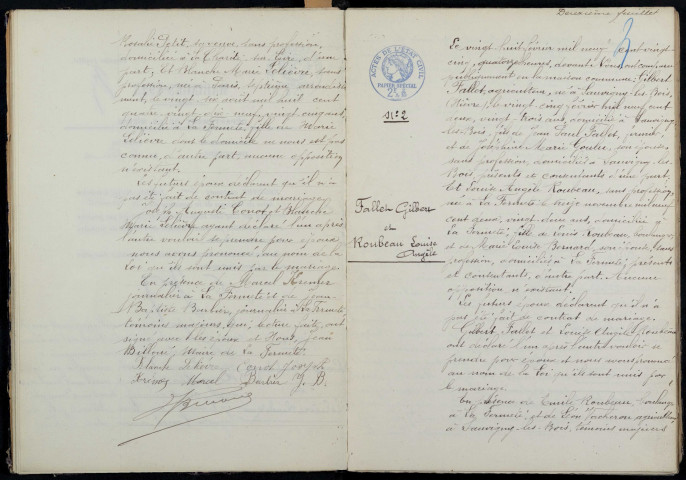 Rosalie Petit, épouse sans profession,
domiciliée à la Charité sur Loire, d'une
part, Et Blanche Marie Lelièvre, sans
profession, née à Paris, septième arrondisse-
ment, le vingt août mil huit cent
quatre vingt neuf, vingt cinq ans,
domiciliée à La Fermeté, fille de Marie
Lelièvre dont le domicile ne nous est pas
connu, d'autre part, aucune opposition
n'existant.
Les futurs époux déclarent qu'il n'a
pas été fait de contrat de mariage.
Auguste et Blanche
Marie Lelièvre ayant déclaré l'un après
l'autre vouloir se prendre pour époux
nous avons prononcé au nom de la
Loi qu'ils sont unis par le mariage.
En présence de Marcel
journalier à La Fermeté et de Jean
Baptiste Barbier, journalier à La Fermeté
témoins majeurs, qui, lecture faite, ont
signé avec les époux et Nous, Jean
Maire de La Fermeté.
Marcel Barbier J. B.
Deuxième feuillet
ACTES DE L'ETAT CIVIL
PAPIER SPECIAL
N° 2
Fallet Gilbert
et
Roubeau Louise
Angèle
Le vingt huit février mil neuf cent vingt-
cinq, quatorze heures, devant Nous ont comparu
publiquement en la maison commune, Gilbert
Fallet, agriculteur, né à Sauvigny-les-Bois,
(Nièvre) le vingt cinq février mil neuf cent
deux, vingt trois ans, domicilié à Sauvigny
les-Bois, fils de Jean Paul Fallet,
et de Joséphine Marie son épouse,
sans profession, domiciliés à Sauvigny-les-
Bois présents et consentants d'une part,
Et Louise Angèle Roubeau, sans profession,
née à La Fermeté le treize novembre mil neuf
cent deux, vingt deux ans, domiciliée à
La Fermeté, fille de Louis Roubeau,
et de Marie Louise Bernard son épouse, sans
profession, domiciliés à La Fermeté, présents
et consentants, d'autre part. Aucune
opposition n'existant.
Les futurs époux déclarent qu'il n'a
pas été fait de contrat de mariage.
Gilbert Fallet et Louise Angèle Roubeau
ont déclaré l'un après l'autre vouloir se
prendre pour époux et nous avons prononcé
au nom de la Loi qu'ils sont unis par
le mariage.
En présence de Emile Roubeau,
à La Fermeté, et de Léon
à Sauvigny-les-Bois, témoins majeurs